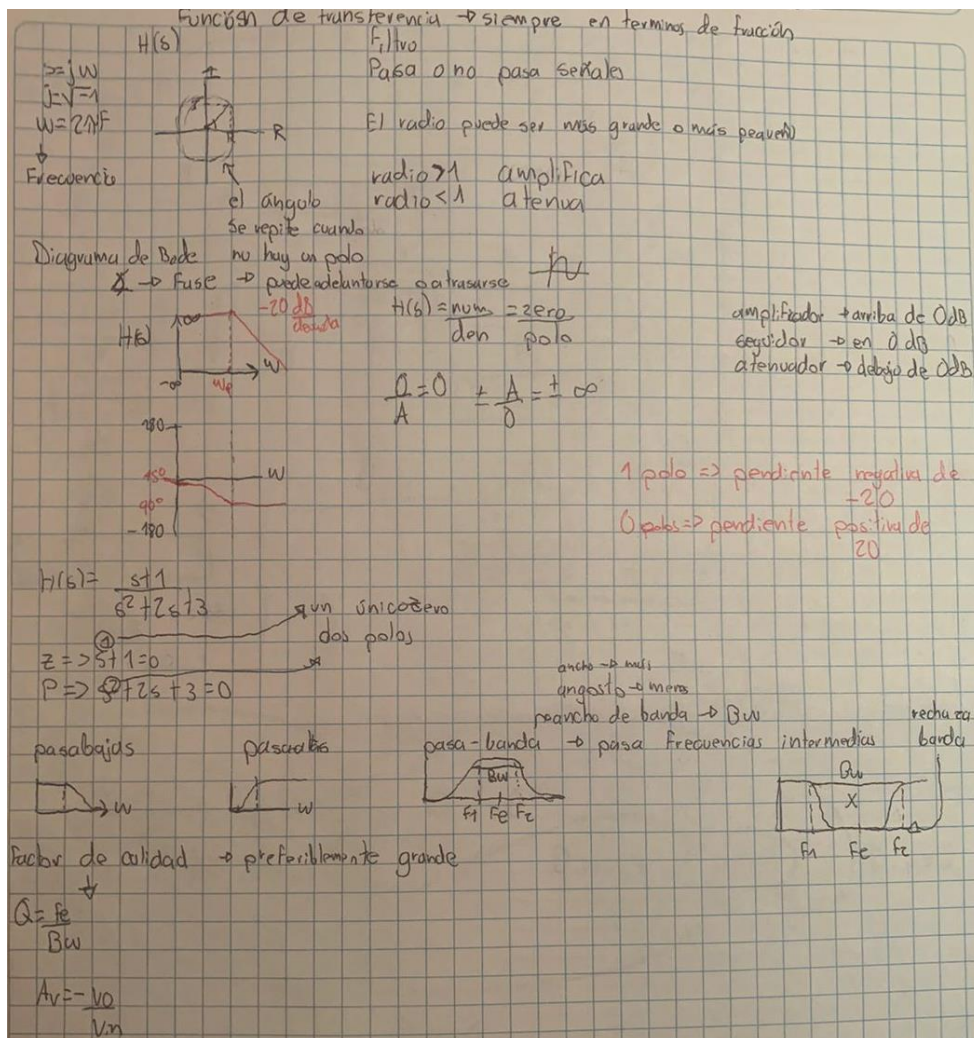 Función de transferencia → siempre en terminos de fracción
H(s)
Filtro
s=jω
j=√-1
ω=2πF
↓
Frecuencia
I
R
Pasa o no pasa señales
El radio puede ser más grande o más pequeño
radio>1 amplifica
radio<1 atenua
el ángulo
se repite cuando
no hay un polo
Diagrama de Bode
→ Fase → puede adelantarse o atrasarse
-20 dB
decada
H(s)
∞
-∞
ωp
ω
H(s) = num = zero
den polo
amplificador → arriba de 0dB
seguidor → en 0 dB
atenuador → debajo de 0dB
0/A = 0 ± A/0 = ± ∞
180
45°
90°
-180
ω
1 polo => pendiente negativa de
-20
0 polos => pendiente positiva de
20
H(s) = s+1
s²+2s+3
un único zero
dos polos
Z => s+1=0
P => s²+2s+3=0
ancho → más
angosto → menos
ancho de banda → Bw
pasabajas
ω
pasaaltas
ω
pasa-banda → pasa frecuencias intermedias
Bw
F1 Fc F2
rechaza
banda
Bw
X
F1 Fc F2
Factor de calidad → preferiblemente grande
↓
Q = fc
Bw
Av = - Vo
Vin